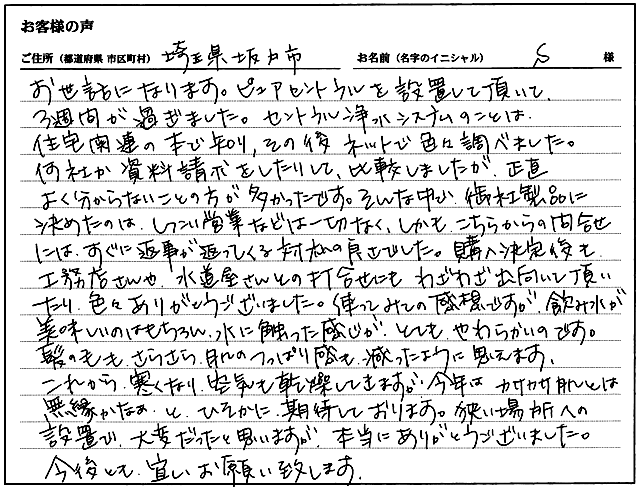 お客様の声
ご住所（都道府県 市区町村） 埼玉県坂戸市 お名前（名字のイニシャル） S 様
お世話になります。ピュアセントラルを設置して頂いて、
3週間が過ぎました。セントラル浄水システムのことは、
住宅関連の本で知り、その後ネットで色々調べました。
何社か資料請求をしたりして、比較しましたが、正直
よく分からないことの方が多かったです。そんな中で、御社製品に
決めたのは、しつこい営業などは一切なく、しかも、こちらからの問合せ
には、すぐに返事が返ってくる対応の良さでした。購入決定後も、
工務店さんや、水道屋さんとの打合せにも、わざわざ出向いて頂い
たり、色々ありがとうございました。使ってみての感想ですが、飲み水が
美味しいのはもちろん、水に触った感じが、とてもやわらかいのです。
髪の毛も、さらさら、肌のつっぱり感も、減ったように思えます。
これから、寒くなり、空気も乾燥してきますが、今年は、カサカサ肌とは
無縁かなぁ、と、ひそかに、期待しております。狭い場所への
設置で、大変だったと思いますが、本当にありがとうございました。
今後とも、宜しくお願い致します。